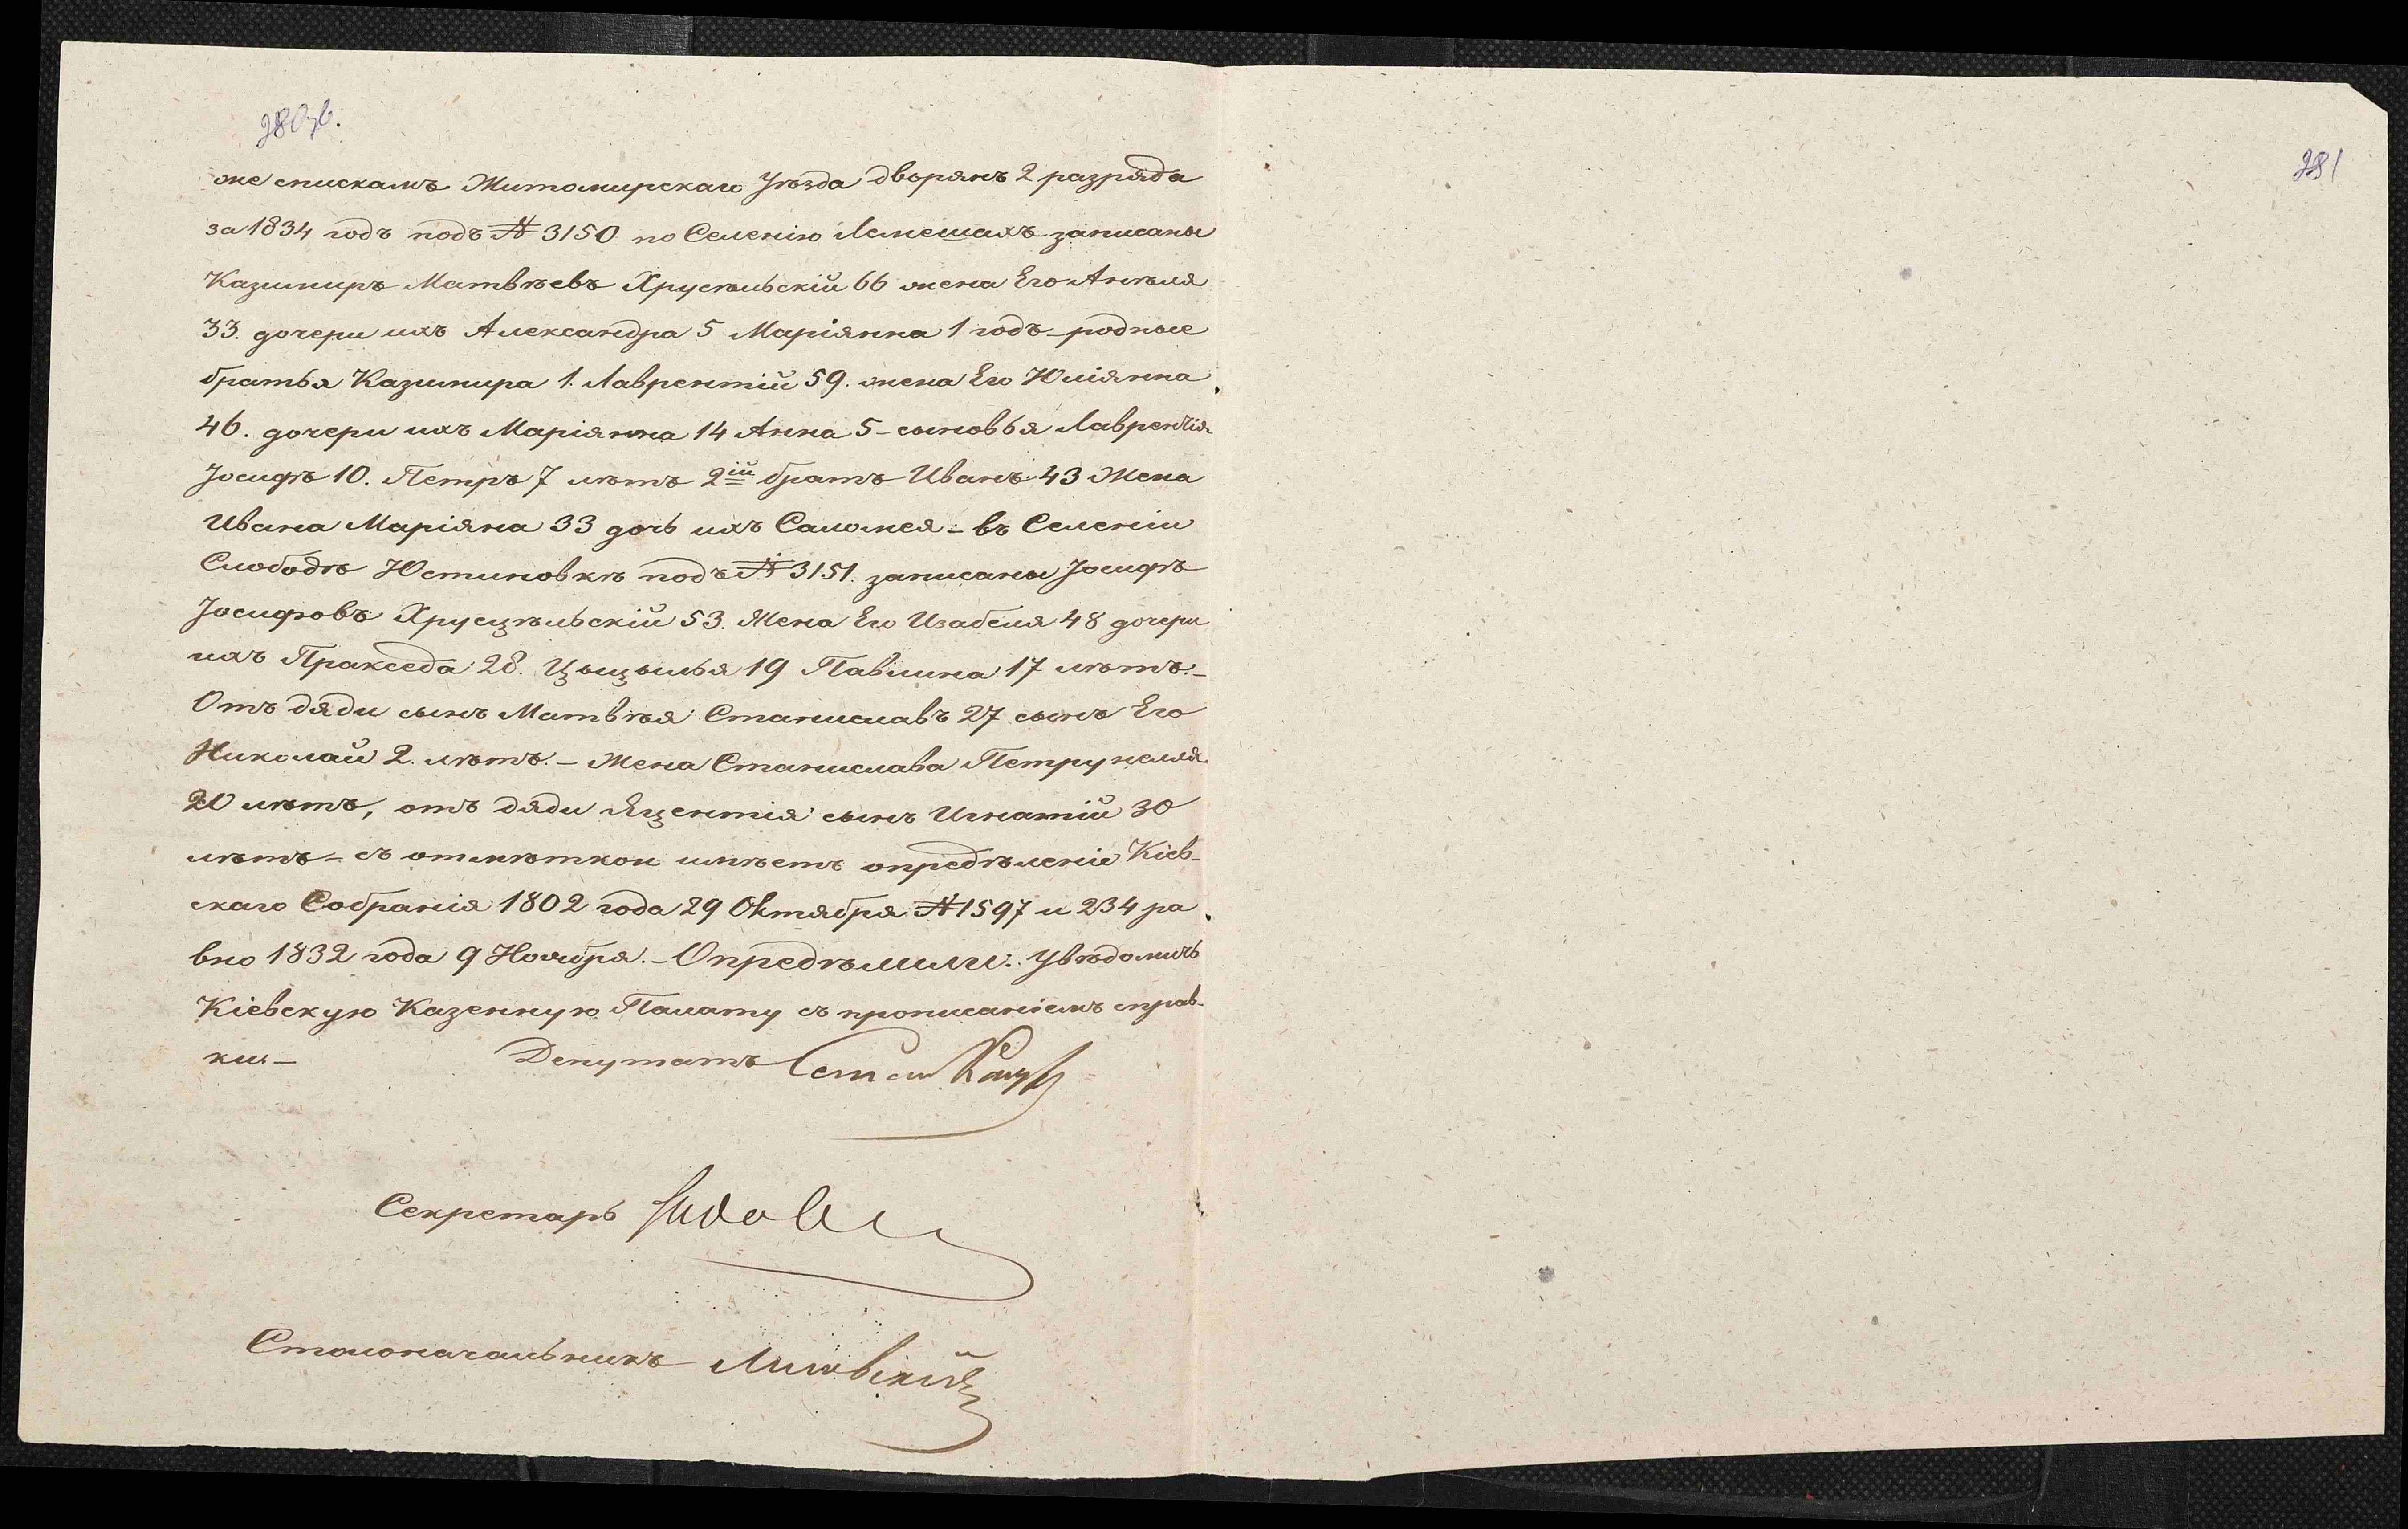 280об.
281
же спискамъ Житомирскаго Уѣзда дворянъ 2 разряда
за 1834 годъ подъ № 3150 по Селенію Лемешахъ записаны
Казимиръ Матвѣевъ Хрусѣльскій 66 жена Его Анѣля
33. дочери ихъ Александра 5 Маріянна 1 годъ – родные
братья Казимира 1. Лаврентій 59. жена Его Юліянна
46. дочери ихъ Маріянна 14 Анна 5 – сыновья Лаврентія
Іосифъ 10. Петръ 7 лѣтъ 2ій братъ Иванъ 43 Жена
Ивана Маріяна 33 дочь ихъ Саломея – въ Селеніи
Слободѣ Юстиновкѣ подъ № 3151. записаны Іосифъ
Іосифовъ Хрусцѣльскій 53. Жена Его Изабеля 48 дочери
ихъ Пракседа 28. Цыцылья 19 Павлина 17 лѣтъ. –
Отъ дяди сынъ Матвѣя Станиславъ 27 сынъ Его
Николай 2. лѣтъ. – Жена Станислава Петрунелля
20 лѣтъ, отъ дяди Яцентія сынъ Игнатій 30
лѣтъ – съ отмѣткои имѣетъ опредѣленіе Кіев-
скаго Собранія 1802 года 29 Октября № 1597 и 234 ра
вно 1832 года 9 Ноября. – Опредѣлили: Увѣдомить
Кіевскую Казенную Палату съ прописаніемъ справ-
ки. – Депутатъ
Секретарь
Столоначальникъ